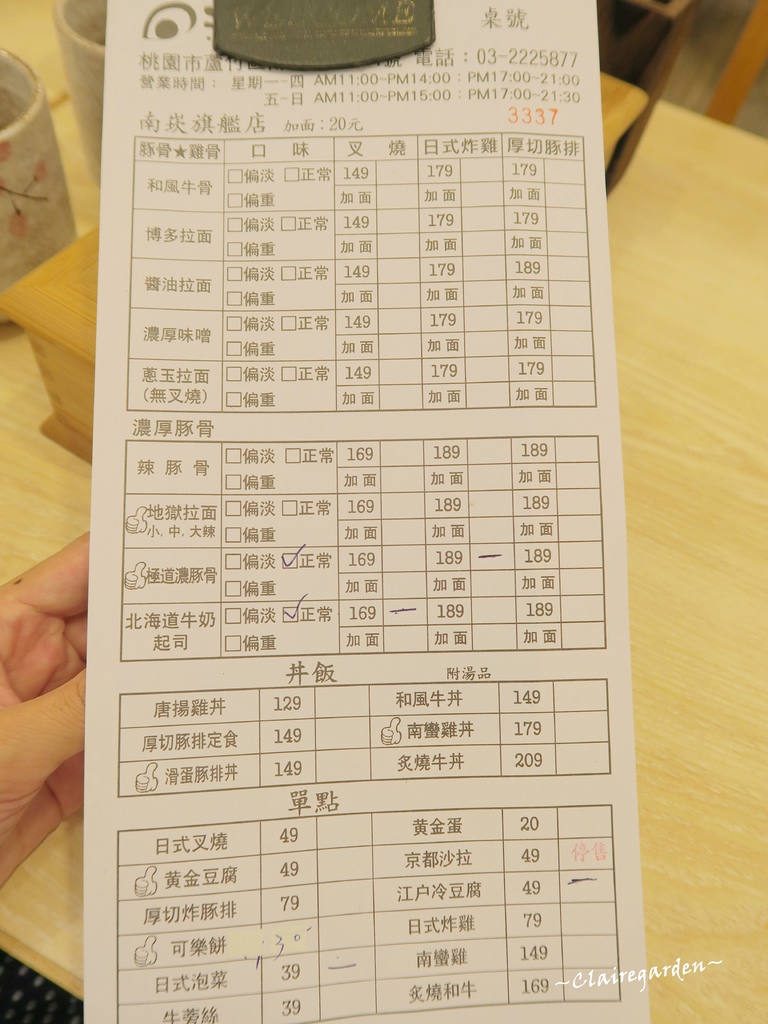 WELCOME
桌號
桃園市蘆竹區 號 電話：03-2225877
營業時間： 星期一~四 AM11:00~PM14:00：PM17:00~21:00
五~日 AM11:00~PM15:00：PM17:00~21:30
南崁旗艦店 加面：20元 3337
豚骨★雞骨 口味 叉燒 日式炸雞 厚切豚排
和風牛骨 □偏淡 □正常 149 179 179
□偏重 加面 加面 加面
博多拉面 □偏淡 □正常 149 179 179
□偏重 加面 加面 加面
醬油拉面 □偏淡 □正常 149 179 189
□偏重 加面 加面 加面
濃厚味噌 □偏淡 □正常 149 179 179
□偏重 加面 加面 加面
蔥玉拉面 □偏淡 □正常 149 179 179
(無叉燒) □偏重 加面 加面 加面
濃厚豚骨
辣豚骨 □偏淡 □正常 169 189 189
□偏重 加面 加面 加面
地獄拉面 □偏淡 □正常 169 189 189
小, 中, 大辣 □偏重 加面 加面 加面
極道濃豚骨 □偏淡 ☑正常 169 189 一 189
□偏重 加面 加面 加面
北海道牛奶 □偏淡 ☑正常 169 一 189 189
起司 □偏重 加面 加面 加面
丼飯 附湯品
唐揚雞丼 129 和風牛丼 149
厚切豚排定食 149 南蠻雞丼 179
滑蛋豚排丼 149 炙燒牛丼 209
單點
日式叉燒 49 黃金蛋 20
黃金豆腐 49 京都沙拉 49 停售
厚切炸豚排 79 江户冷豆腐 49 一
可樂餅 30 日式炸雞 79
日式泡菜 39 二 南蠻雞 149
牛蒡絲 39 炙燒和牛 169
~Clairegarden~